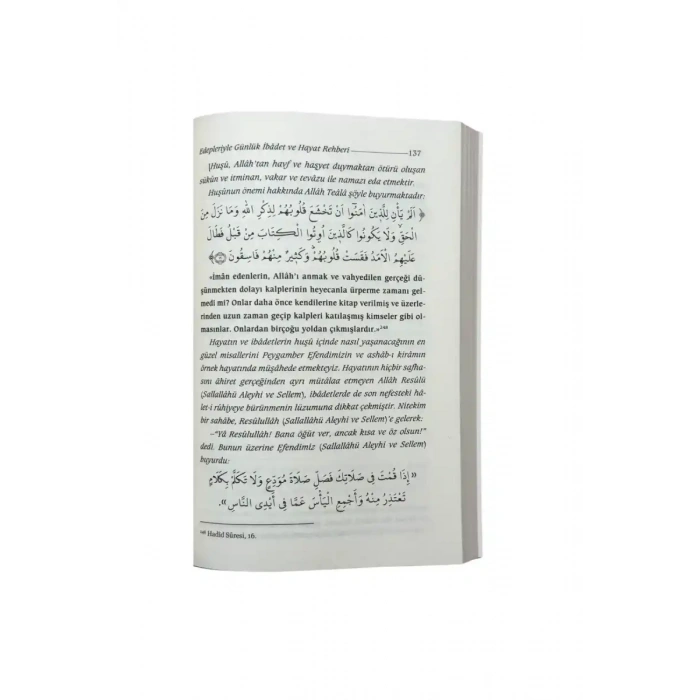 Edepleriyle Günlük İbâdet ve Hayat Rehberi 137
Huşû, Allâh'tan havf ve haşyet duymaktan ötürü oluşan
sükûn ve itminan, vakar ve tevâzu ile namazı eda etmektir.
Huşûnun önemi hakkında Allâh Teâlâ şöyle buyurmaktadır:
﴿ اَلَمْ يَأْنِ لِلَّذِينَ اٰمَنُٓوا اَنْ تَخْشَعَ قُلُوبُهُمْ لِذِكْرِ اللّٰهِ وَمَا نَزَلَ مِنَ
الْحَقِّۙ وَلَا يَكُونُوا كَالَّذِينَ اُوتُوا الْكِتَابَ مِنْ قَبْلُ فَطَالَ
عَلَيْهِمُ الْاَمَدُ فَقَسَتْ قُلُوبُهُمْۜ وَكَثِيرٌ مِنْهُمْ فَاسِقُونَ ﴾
«İmân edenlerin, Allâh'ı anmak ve vahyedilen gerçeği dü-
şünmekten dolayı kalplerinin heyecanla ürperme zamanı gel-
medi mi? Onlar daha önce kendilerine kitap verilmiş ve üzerle-
rinden uzun zaman geçip kalpleri katılaşmış kimseler gibi ol-
masınlar. Onlardan birçoğu yoldan çıkmışlardır.»²⁴⁸
Hayatın ve ibâdetlerin huşû içinde nasıl yaşanacağının en
güzel misallerini Peygamber Efendimizin ve ashâb-ı kirâmın
örnek hayatında müşâhede etmekteyiz. Hayatının hiçbir safha-
sını âhiret gerçeğinden ayrı mütâlaa etmeyen Allâh Resûlü
(Sallallâhü Aleyhi ve Sellem), ibâdetlerde de son nefesteki hâ-
let-i rûhiyeye bürünmenin lüzumuna dikkat çekmiştir. Nitekim
bir sahâbe, Resûlullâh (Sallallâhü Aleyhi ve Sellem)'e gelerek:
–"Yâ Resûlullâh! Bana öğüt ver, ancak kısa ve öz olsun!"
dedi. Bunun üzerine Efendimiz (Sallallâhü Aleyhi ve Sellem)
buyurdu:
« اِذَا قُمْتَ فِى صَلَاتِكَ فَصَلِّ صَلَاةَ مُوَدِّعٍ وَلَا تَكَلَّمْ بِكَلَامٍ
تَعْتَذِرُ مِنْهُ وَاَجْمِعِ الْيَأْسَ عَمَّا فِى اَيْدِى النَّاسِ ».
²⁴⁸ Hadîd Sûresi, 16.